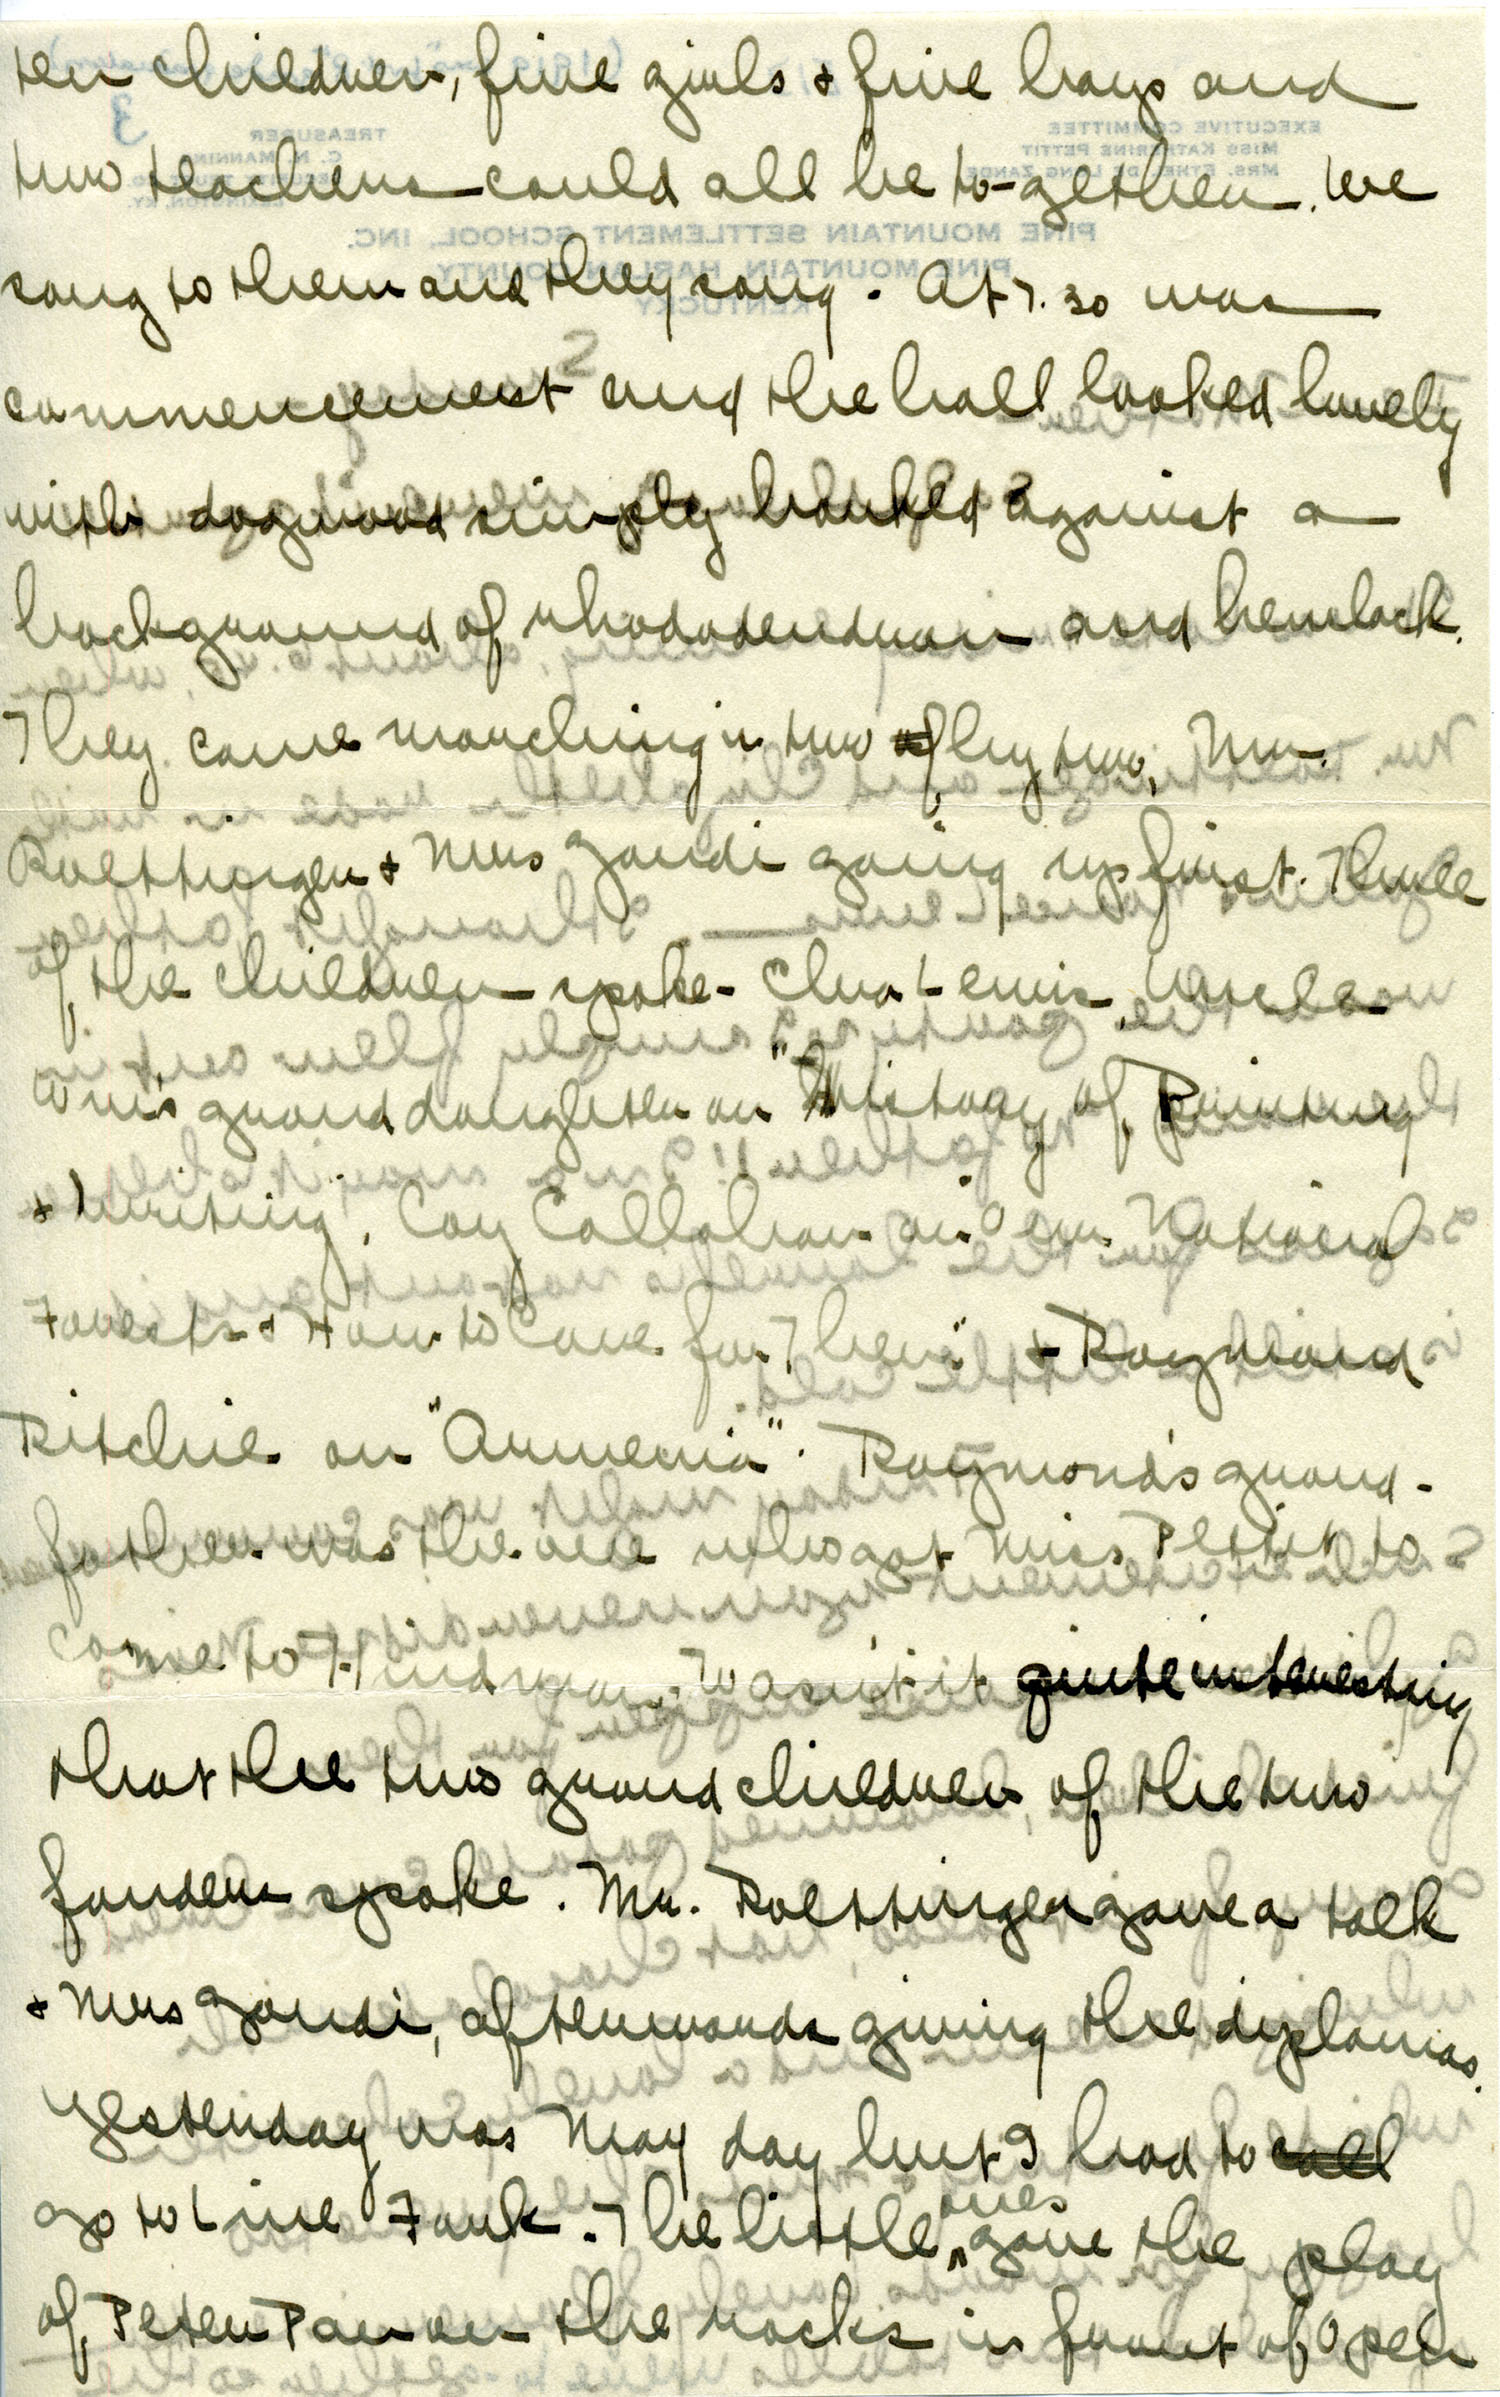 ten children, five girls & five boys and
two teachers could all be to-gether. We
sang to them and they sang. At 7.30 was
commencement and the hall looked lovely
with dogwood simply banked against a
background of rhododendron and hemlock.
They came marching in two by two, Mr.
Roettinger & Mrs Zandi going up first. Three
of the children spoke - Chra Lewis, Uncle
Wm's granddaughter on "History of Printing
& Writing", Coy Callahan on "Our National
Forests & How to Care for Them" & Raymond
Ritchie on "Armenia". Raymond's grand-
father was the one who got Miss Pettit to
come to Hindman. Wasn't it quite interesting
that the two grandchildren of the two
founders spoke. Mr. Roettinger gave a talk
& Mrs Zandi, afterwards giving the diplomas.
Yesterday was May day but I had to call
go to Line Fork. The little ones gave the play
of Peter Pan on the rocks in front of Open